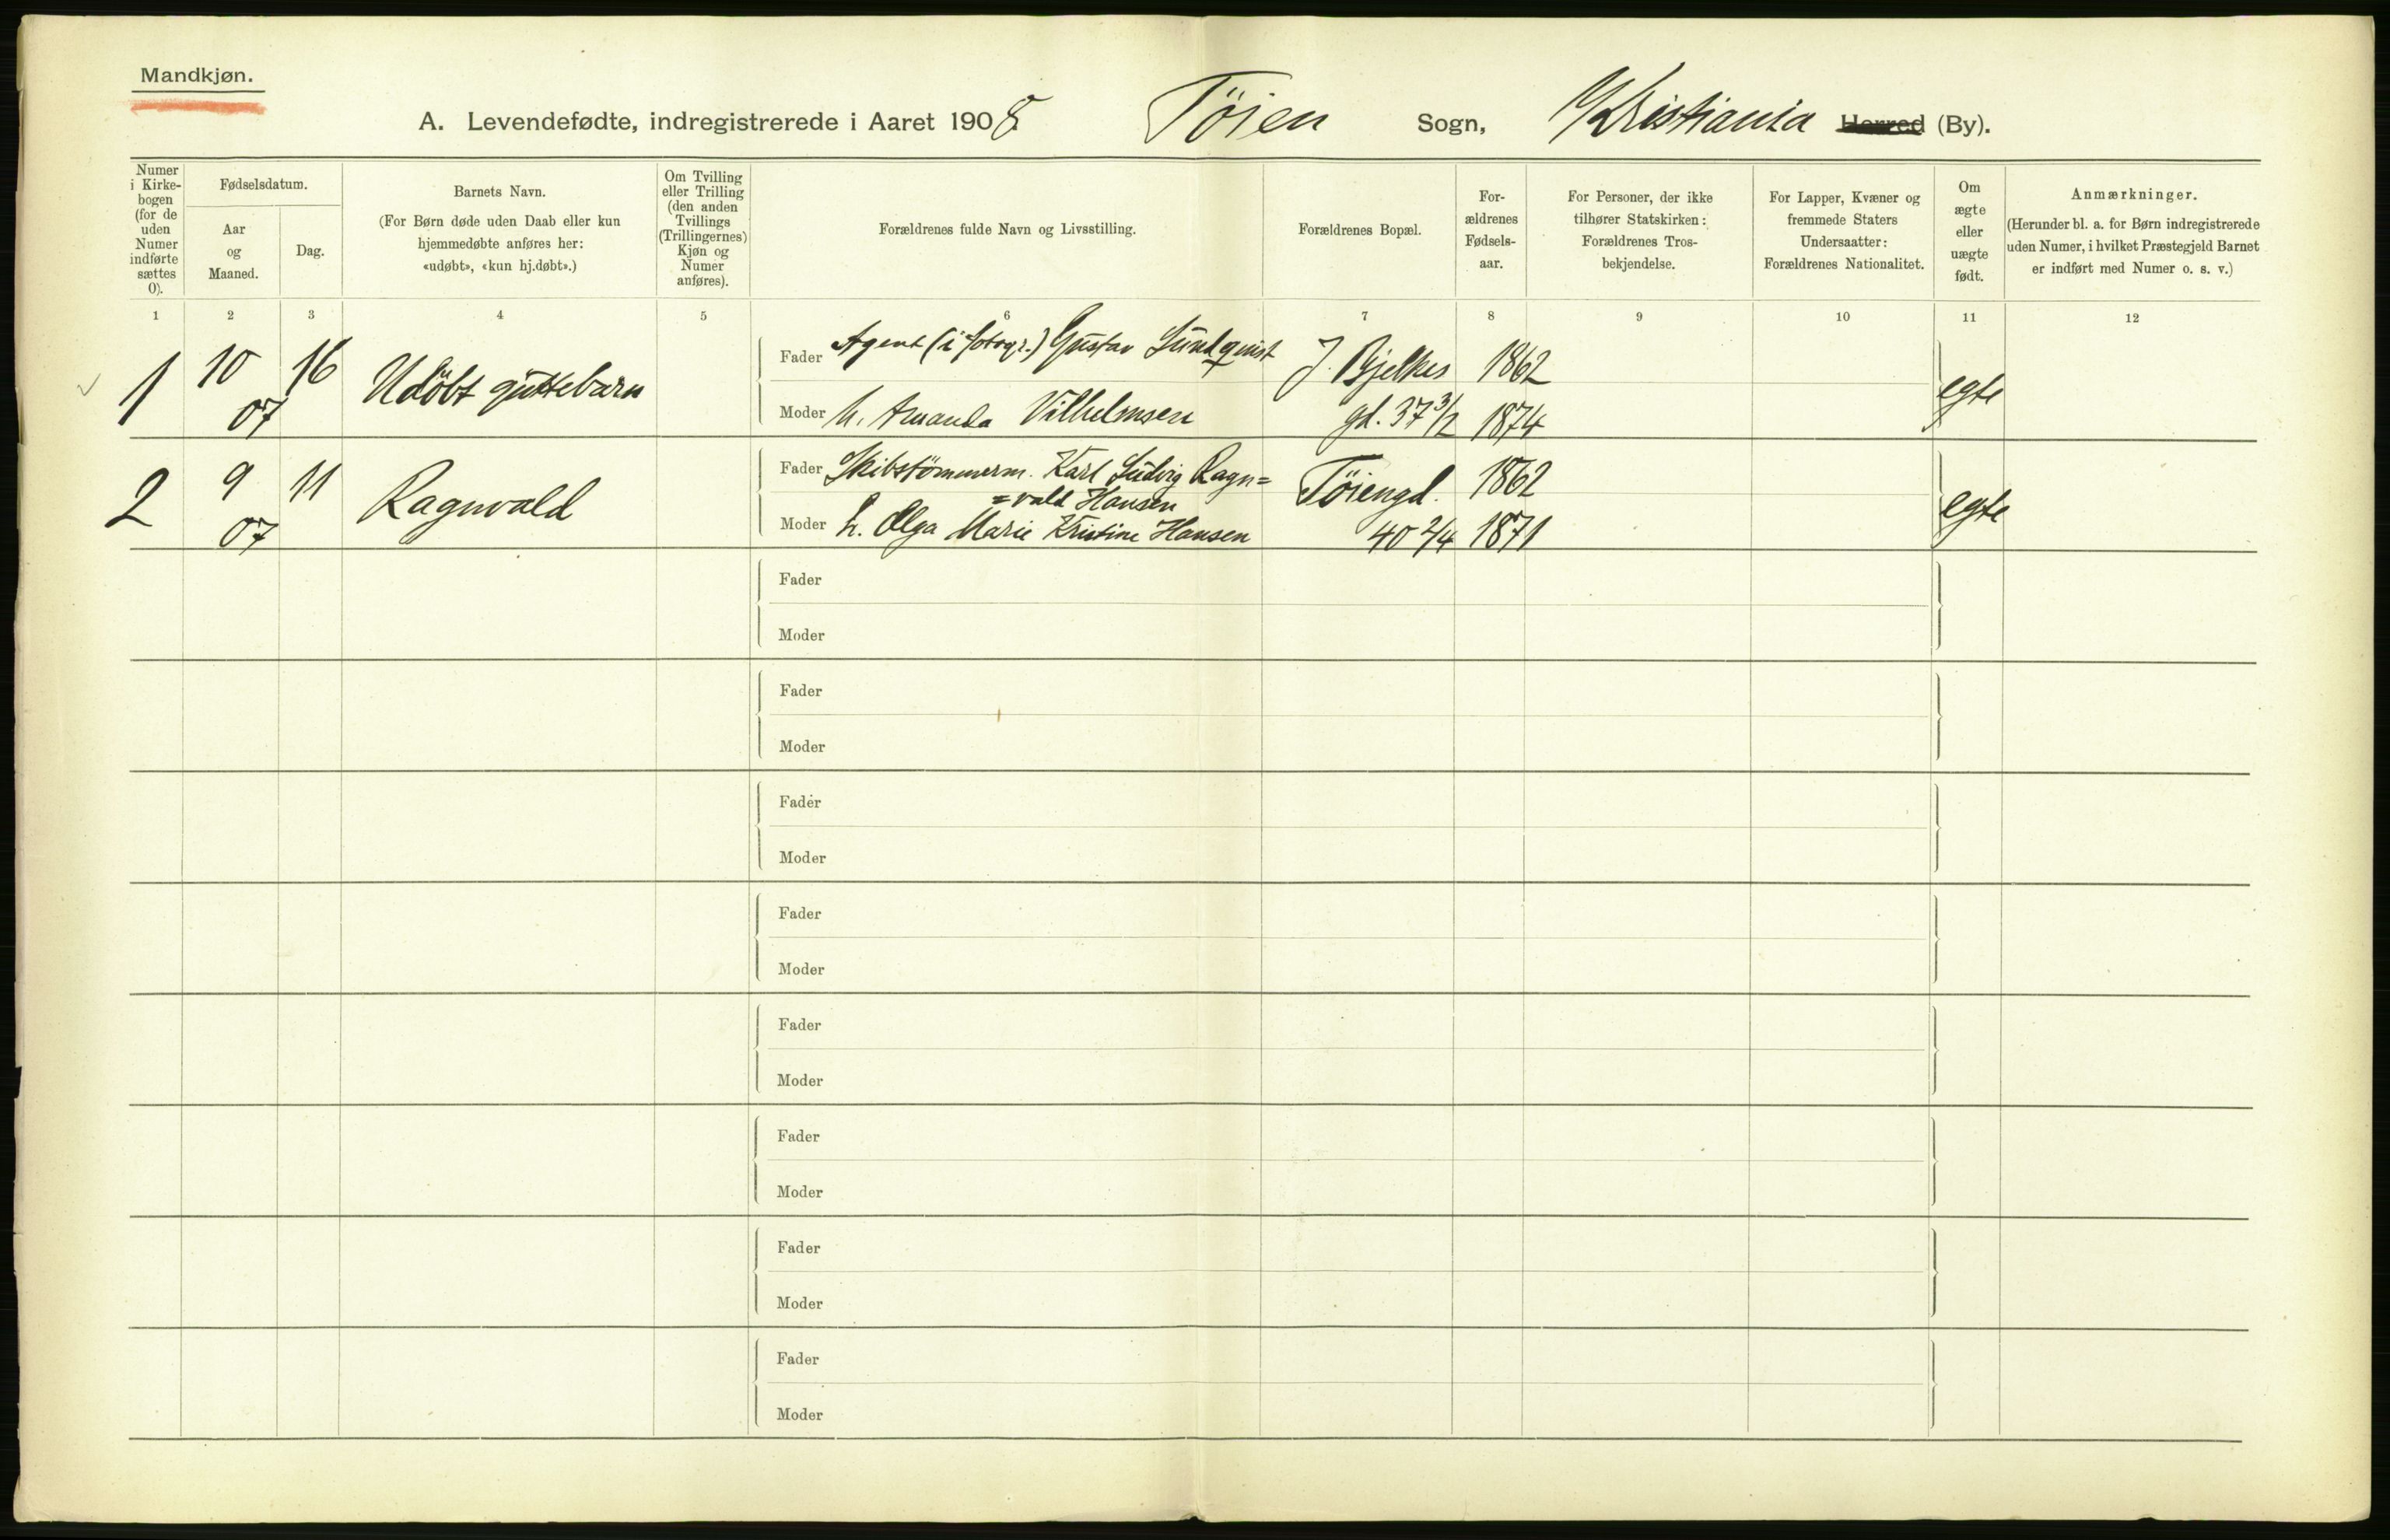 Mandkjøn.
A. Levendefødte, indregistrerede i Aaret 1908. Töien Sogn, Kristiania Herred (By).
Numer i Kirke-bogen (for de uden Numer indførte sættes 0).
Fødselsdatum.
Aar og Maaned.
Dag.
Barnets Navn.
(For Børn døde uden Daab eller kun
hjemmedøbte anføres her:
«udøbt», «kun hj.døbt».)
Om Tvilling eller Trilling (den anden Tvillings (Trillingernes) Kjøn og Numer anføres).
Forældrenes fulde Navn og Livsstilling.
Forældrenes Bopæl.
For-ældrenes Fødsels-aar.
For Personer, der ikke
tilhører Statskirken:
Forældrenes Tros-
bekjendelse.
For Lapper, Kvæner og
fremmede Staters
Undersaatter:
Forældrenes Nationalitet.
Om ægte eller uægte født.
Anmærkninger.
(Herunder bl. a. for Børn indregistrerede
uden Numer, i hvilket Præstegjeld Barnet
er indført med Numer o. s. v.)
1 2 3 4 5 6 7 8 9 10 11 12
1 10 07 16 Udöbt guttebarn
Fader Agent (i fotogr.) Gustav Lundquist J. Bjelkes 1862 egte
Moder h. Amanda Vilhelmsen gd. 37 3/2 1874
2 9 07 11 Ragnvald
Fader Skibstömmerm. Karl Ludvig Ragn= Töiengd. 1862 egte
=vald Hansen
Moder h. Olga Marie Kristine Hansen 40 2/4 1871
Fader
Moder
Fader
Moder
Fader
Moder
Fader
Moder
Fader
Moder
Fader
Moder
Fader
Moder
Fader
Moder